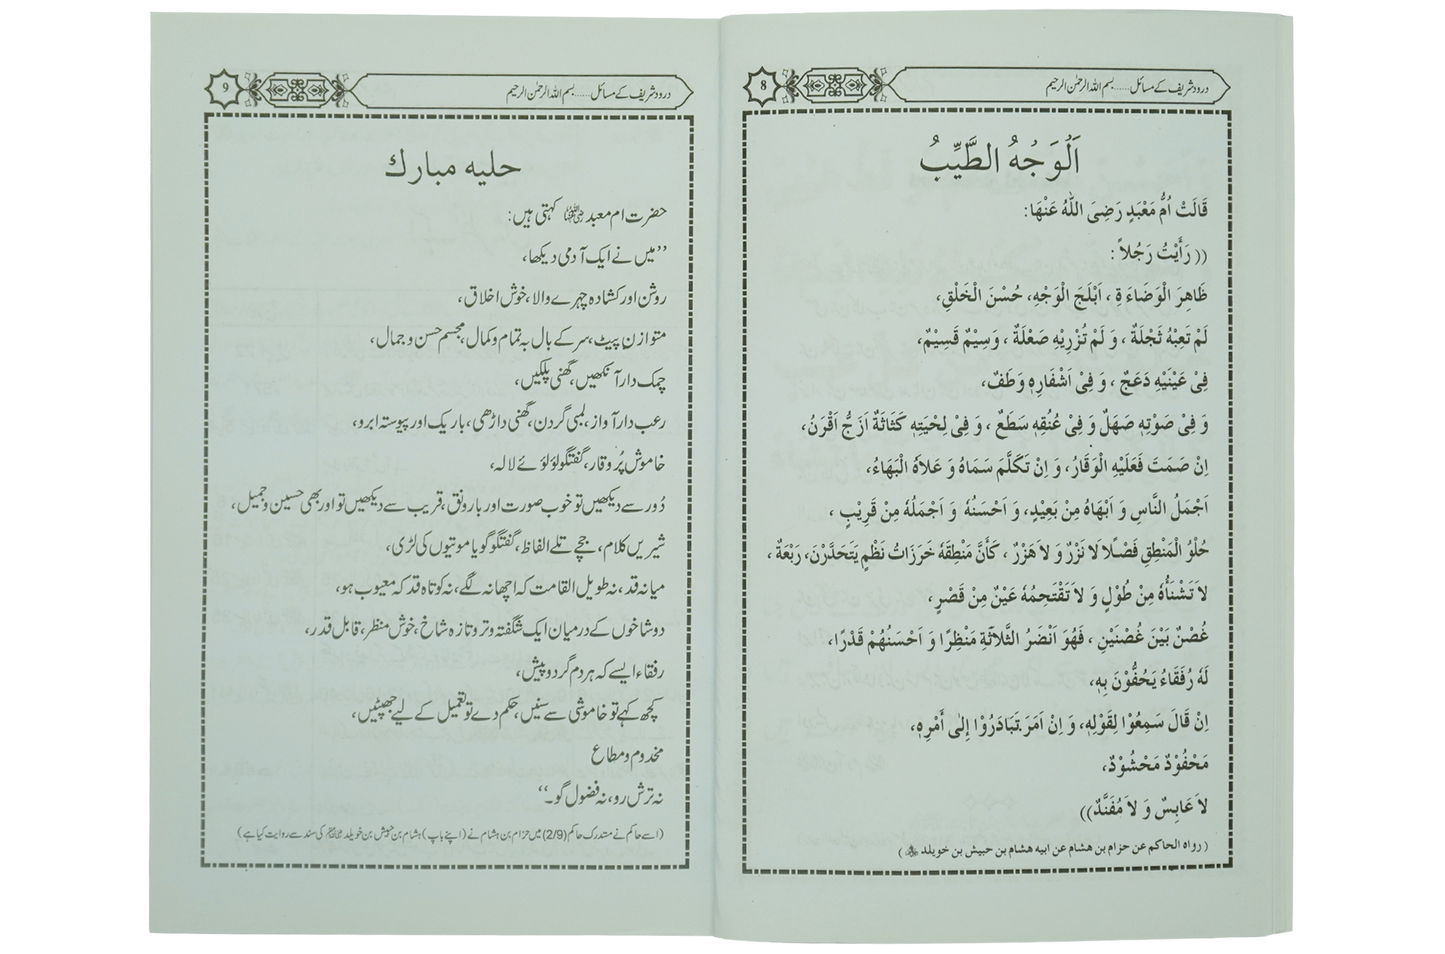 8
درود شریف کے مسائل ..... بسم اللہ الرحمٰن الرحیم
اَلْوَجْهُ الطَّيِّبُ
قَالَتْ اُمُّ مَعْبَدٍ رَضِیَ اللّٰهُ عَنْهَا:
(( رَأَیْتُ رَجُلاً :
ظَاهِرَ الْوَضَاءَةِ ، اَبْلَجَ الْوَجْهِ، حُسْنَ الْخَلْقِ،
لَمْ تَعِبْهُ ثَجْلَةٌ ، وَ لَمْ تُزْرِیْهِ صَعْلَةٌ ، وَسِیْمٌ قَسِیْمٌ،
فِیْ عَیْنَیْهِ دَعَجٌ ، وَ فِیْ اَشْفَارِهٖ وَطَفٌ،
وَ فِیْ صَوْتِهٖ صَهَلٌ وَ فِیْ عُنُقِهٖ سَطَعٌ ، وَ فِیْ لِحْیَتِهٖ كَثَاثَةٌ اَزَجُّ اَقْرَنُ،
اِنْ صَمَتَ فَعَلَیْهِ الْوَقَارُ، وَ اِنْ تَكَلَّمَ سَمَاهُ وَ عَلاَهُ الْبَهَاءُ،
اَجْمَلُ النَّاسِ وَ اَبْهَاهُ مِنْ بَعِیْدٍ، وَ اَحْسَنُهٗ وَ اَجْمَلُهٗ مِنْ قَرِیْبٍ ،
حُلْوُ الْمَنْطِقِ فَصْلًا لَا نَزْرٌ وَ لاَ هَزْرٌ ، كَأَنَّ مَنْطِقَهٗ خَرَزَاتُ نَظْمٍ یَتَحَدَّرْنَ، رَبْعَةٌ ،
لاَ تَشْنَأُهٗ مِنْ طُوْلٍ وَ لاَ تَقْتَحِمُهٗ عَیْنٌ مِنْ قَصْرٍ،
غُصْنٌ بَیْنَ غُصْنَیْنِ ، فَهُوَ اَنْضَرُ الثَّلاَثَةِ مَنْظِرًا وَ اَحْسَنُهُمْ قَدْرًا،
لَهٗ رُفَقَاءُ یَحُفُّوْنَ بِهٖ،
اِنْ قَالَ سَمِعُوْا لِقَوْلِهٖ، وَ اِنْ اَمَرَ تَبَادَرُوْا اِلٰی أَمْرِهٖ،
مَحْفُوْدٌ مَحْشُوْدٌ،
لاَ عَابِسٌ وَ لاَ مُفَنَّدٌ))
( رواه الحاكم عن حزام بن هشام عن ابيه هشام بن حبيش بن خويلد )
9
درود شریف کے مسائل ..... بسم اللہ الرحمٰن الرحیم
حلیہ مبارک
حضرت ام معبد رضی اللہ عنہا کہتی ہیں:
’’میں نے ایک آدمی دیکھا،
روشن اور کشادہ چہرے والا، خوش اخلاق،
متوازن پیٹ، سر کے بال بہ تمام و کمال، مجسم حسن و جمال،
چمک دار آنکھیں، گھنی پلکیں،
رعب دار آواز، لمبی گردن، گھنی داڑھی، باریک اور پیوستہ ابرو،
خاموش پُروقار، گفتگو لؤلؤئے لالہ،
دُور سے دیکھیں تو خوب صورت اور بارونق، قریب سے دیکھیں تو اور بھی حسین و جمیل،
شیریں کلام، جچے تلے الفاظ، گفتگو گویا موتیوں کی لڑی،
میانہ قد، نہ طویل القامت کہ اچھا نہ لگے، نہ کوتاہ قد کہ معیوب ہو،
دو شاخوں کے درمیان ایک شگفتہ و تروتازہ شاخ، خوش منظر، قابل قدر،
رفقاء ایسے کہ ہر دم گردوپیش،
کچھ کہے تو خاموشی سے سنیں، حکم دے تو تعمیل کے لیے جھپٹیں،
مخدوم و مطاع
نہ ترش رو، نہ فضول گو۔‘‘
(اسے حاکم نے مستدرک حاکم (2/9) میں حزام بن ہشام نے (اپنے باپ) ہشام بن حبیش بن خویلد کی سند سے روایت کیا ہے)